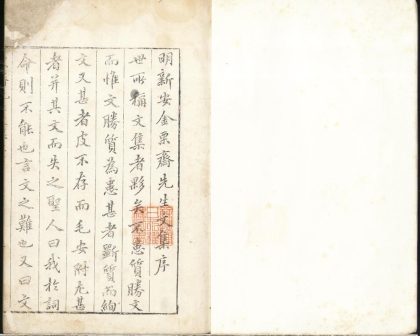 明新安金栗齋先生文集序
世所稱文集者夥矣不患質勝文
而惟文勝質為患甚者斲質而絢
文又甚者皮不存而毛安附尤甚
者并其文而失之聖人曰我於詞
命則不能也言文之難也又曰文